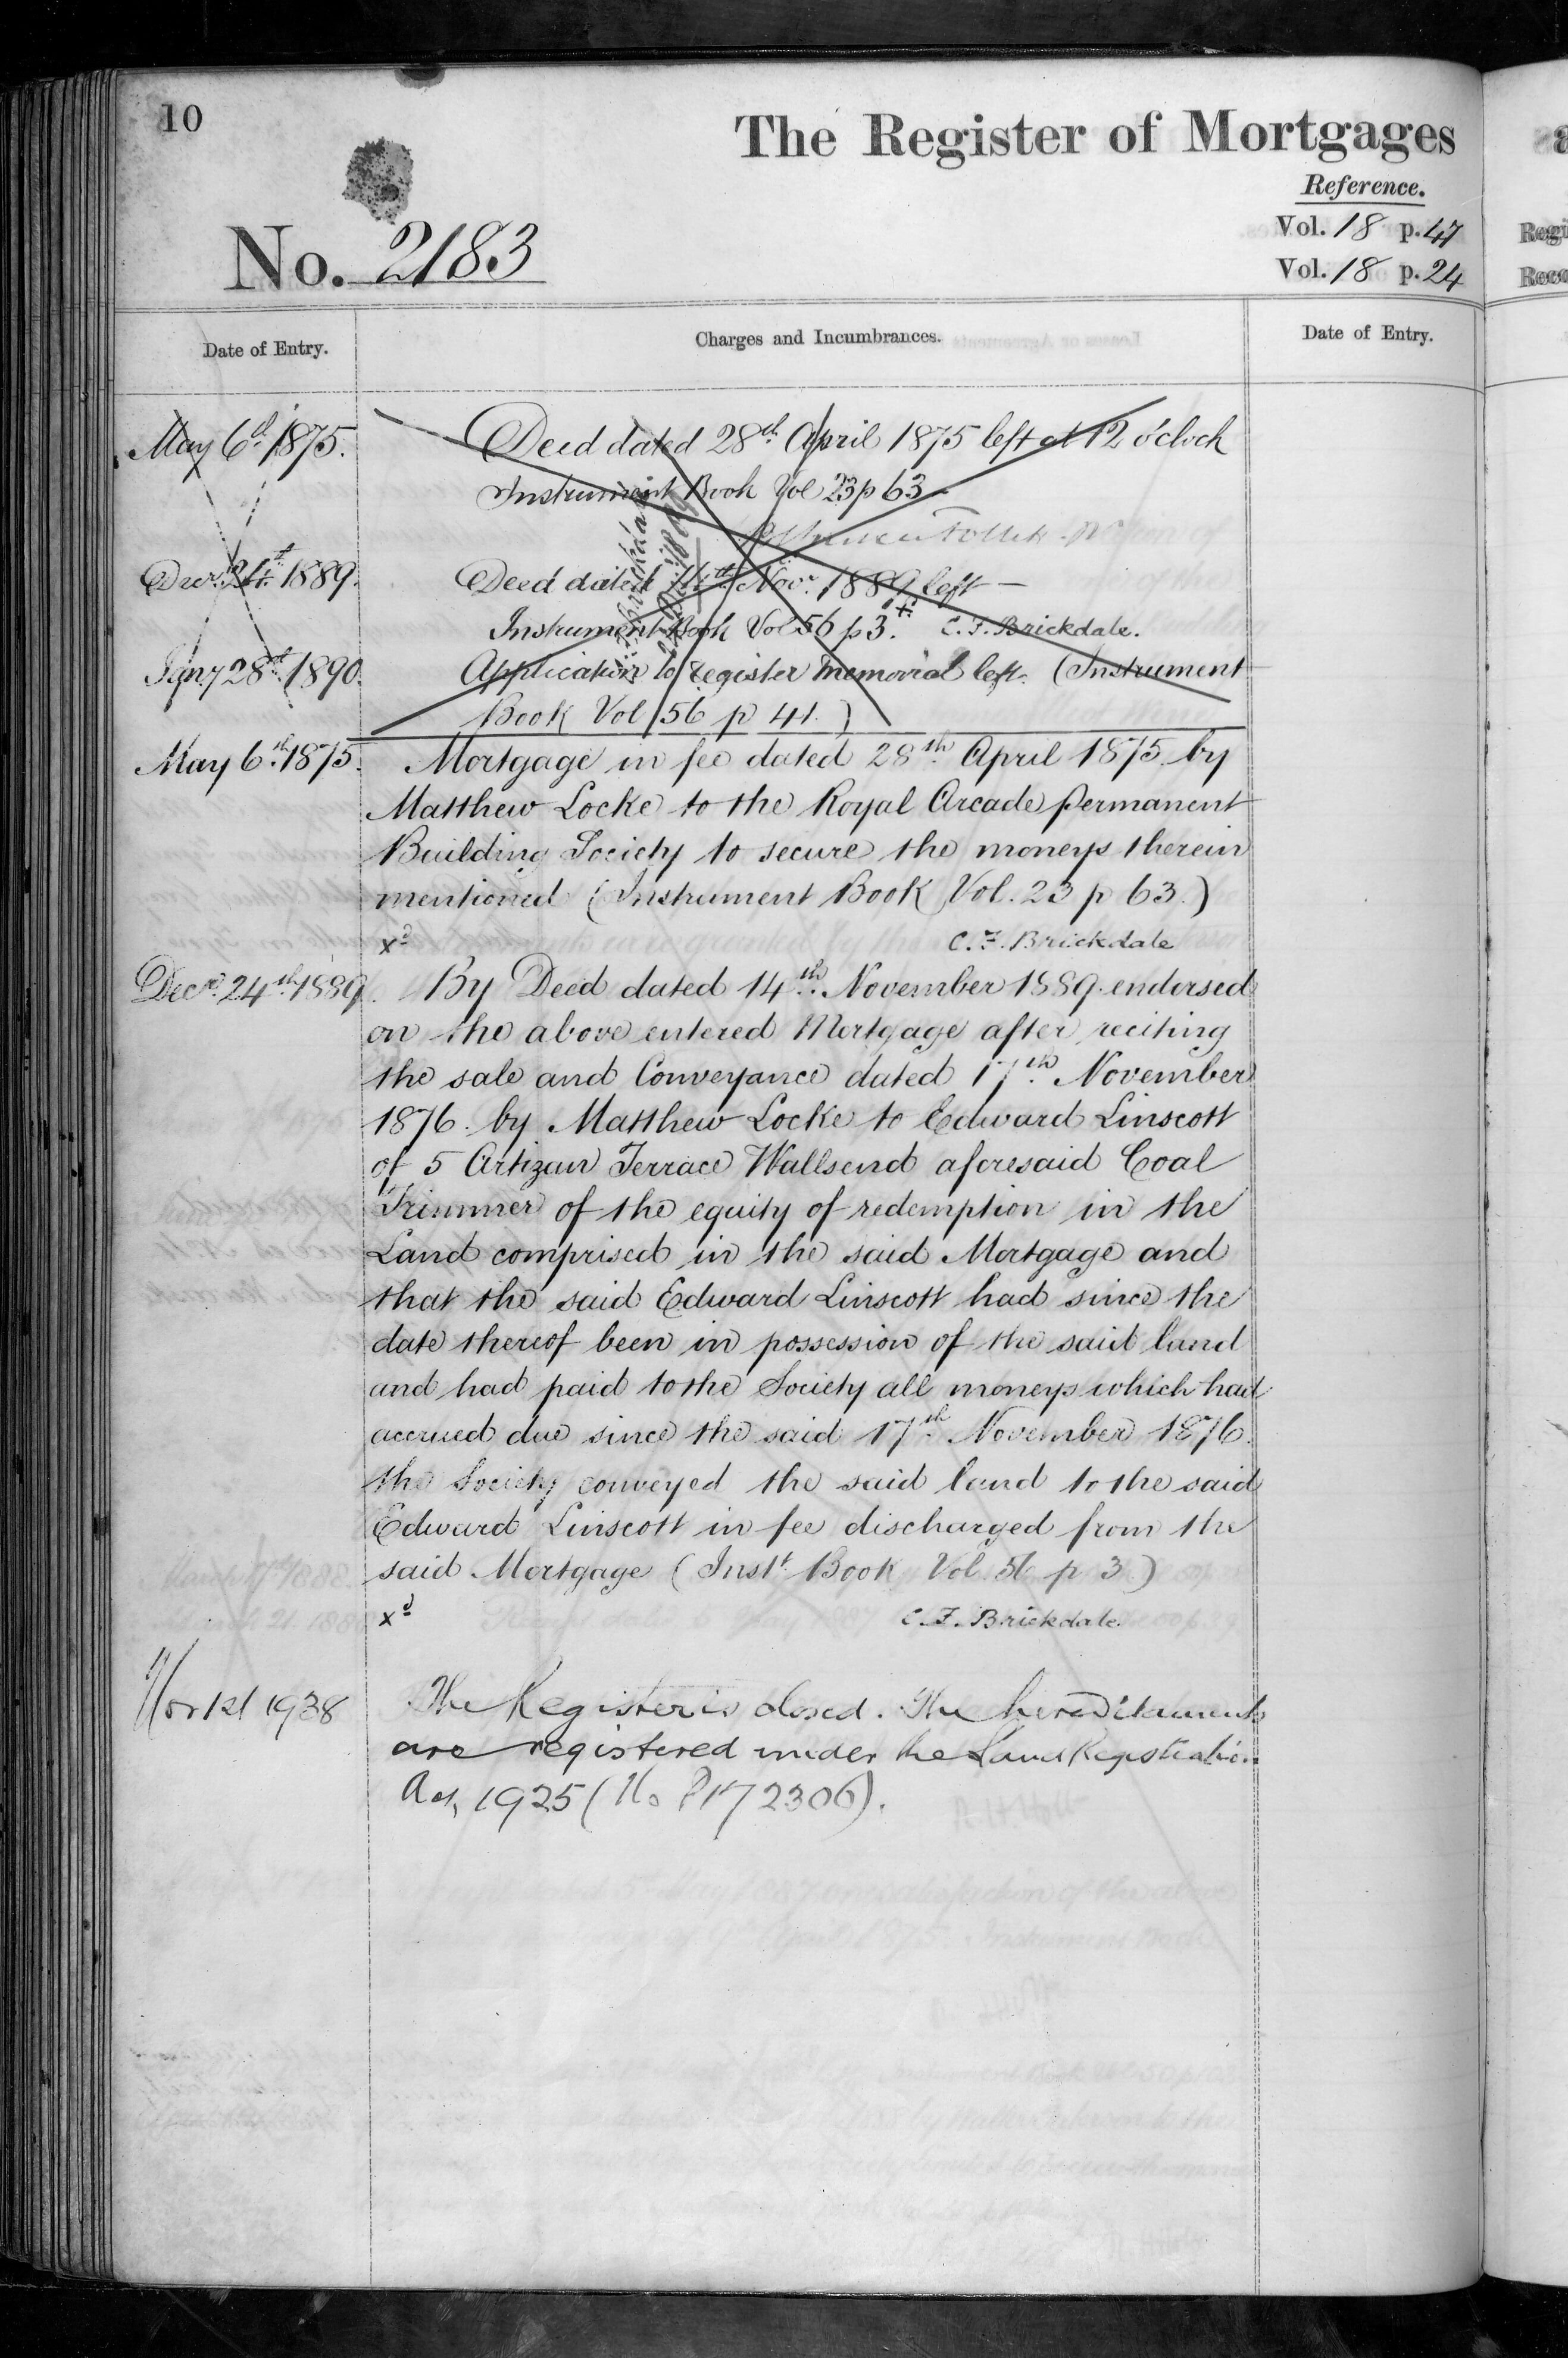 10
The Register of Mortgages
Reference.
Vol. 18 p. 47
Vol. 18 p. 24
No. 2183
Date of Entry.
Charges and Incumbrances.
Date of Entry.
May 6th 1875.
Deed dated 28th April 1875 left at 12 o'clock
Instrument Book Vol 23 p 63
Decr. 24th 1889.
Deed dated 14th Novr. 1889 left
Instrument Book Vol 56 p 3. xd C. F. Brickdale.
Jany 28th 1890.
Application to register memorial left. (Instrument
Book Vol 56 p 41.)
May 6th 1875.
Mortgage in fee dated 28th April 1875 by
Matthew Locke to the Royal Arcade permanent
Building Society to secure the moneys therein
mentioned (Instrument Book Vol. 23 p 63.)
xd C. F. Brickdale
Decr. 24th 1889.
By Deed dated 14th November 1889 endorsed
on the above entered Mortgage after reciting
the sale and Conveyance dated 17th November
1876 by Matthew Locke to Edward Linscott
of 5 Artizan Terrace Wallsend aforesaid Coal
Trimmer of the equity of redemption in the
Land comprised in the said Mortgage and
that the said Edward Linscott had since the
date thereof been in possession of the said land
and had paid to the Society all moneys which had
accrued due since the said 17th November 1876.
the Society conveyed the said land to the said
Edward Linscott in fee discharged from the
said Mortgage (Inst. Book Vol. 56 p 3)
xd C. F. Brickdale.
Nov 1st 1938
The Register is closed. The hereditaments
are registered under the Land Registration
Act, 1925 (No P172306).